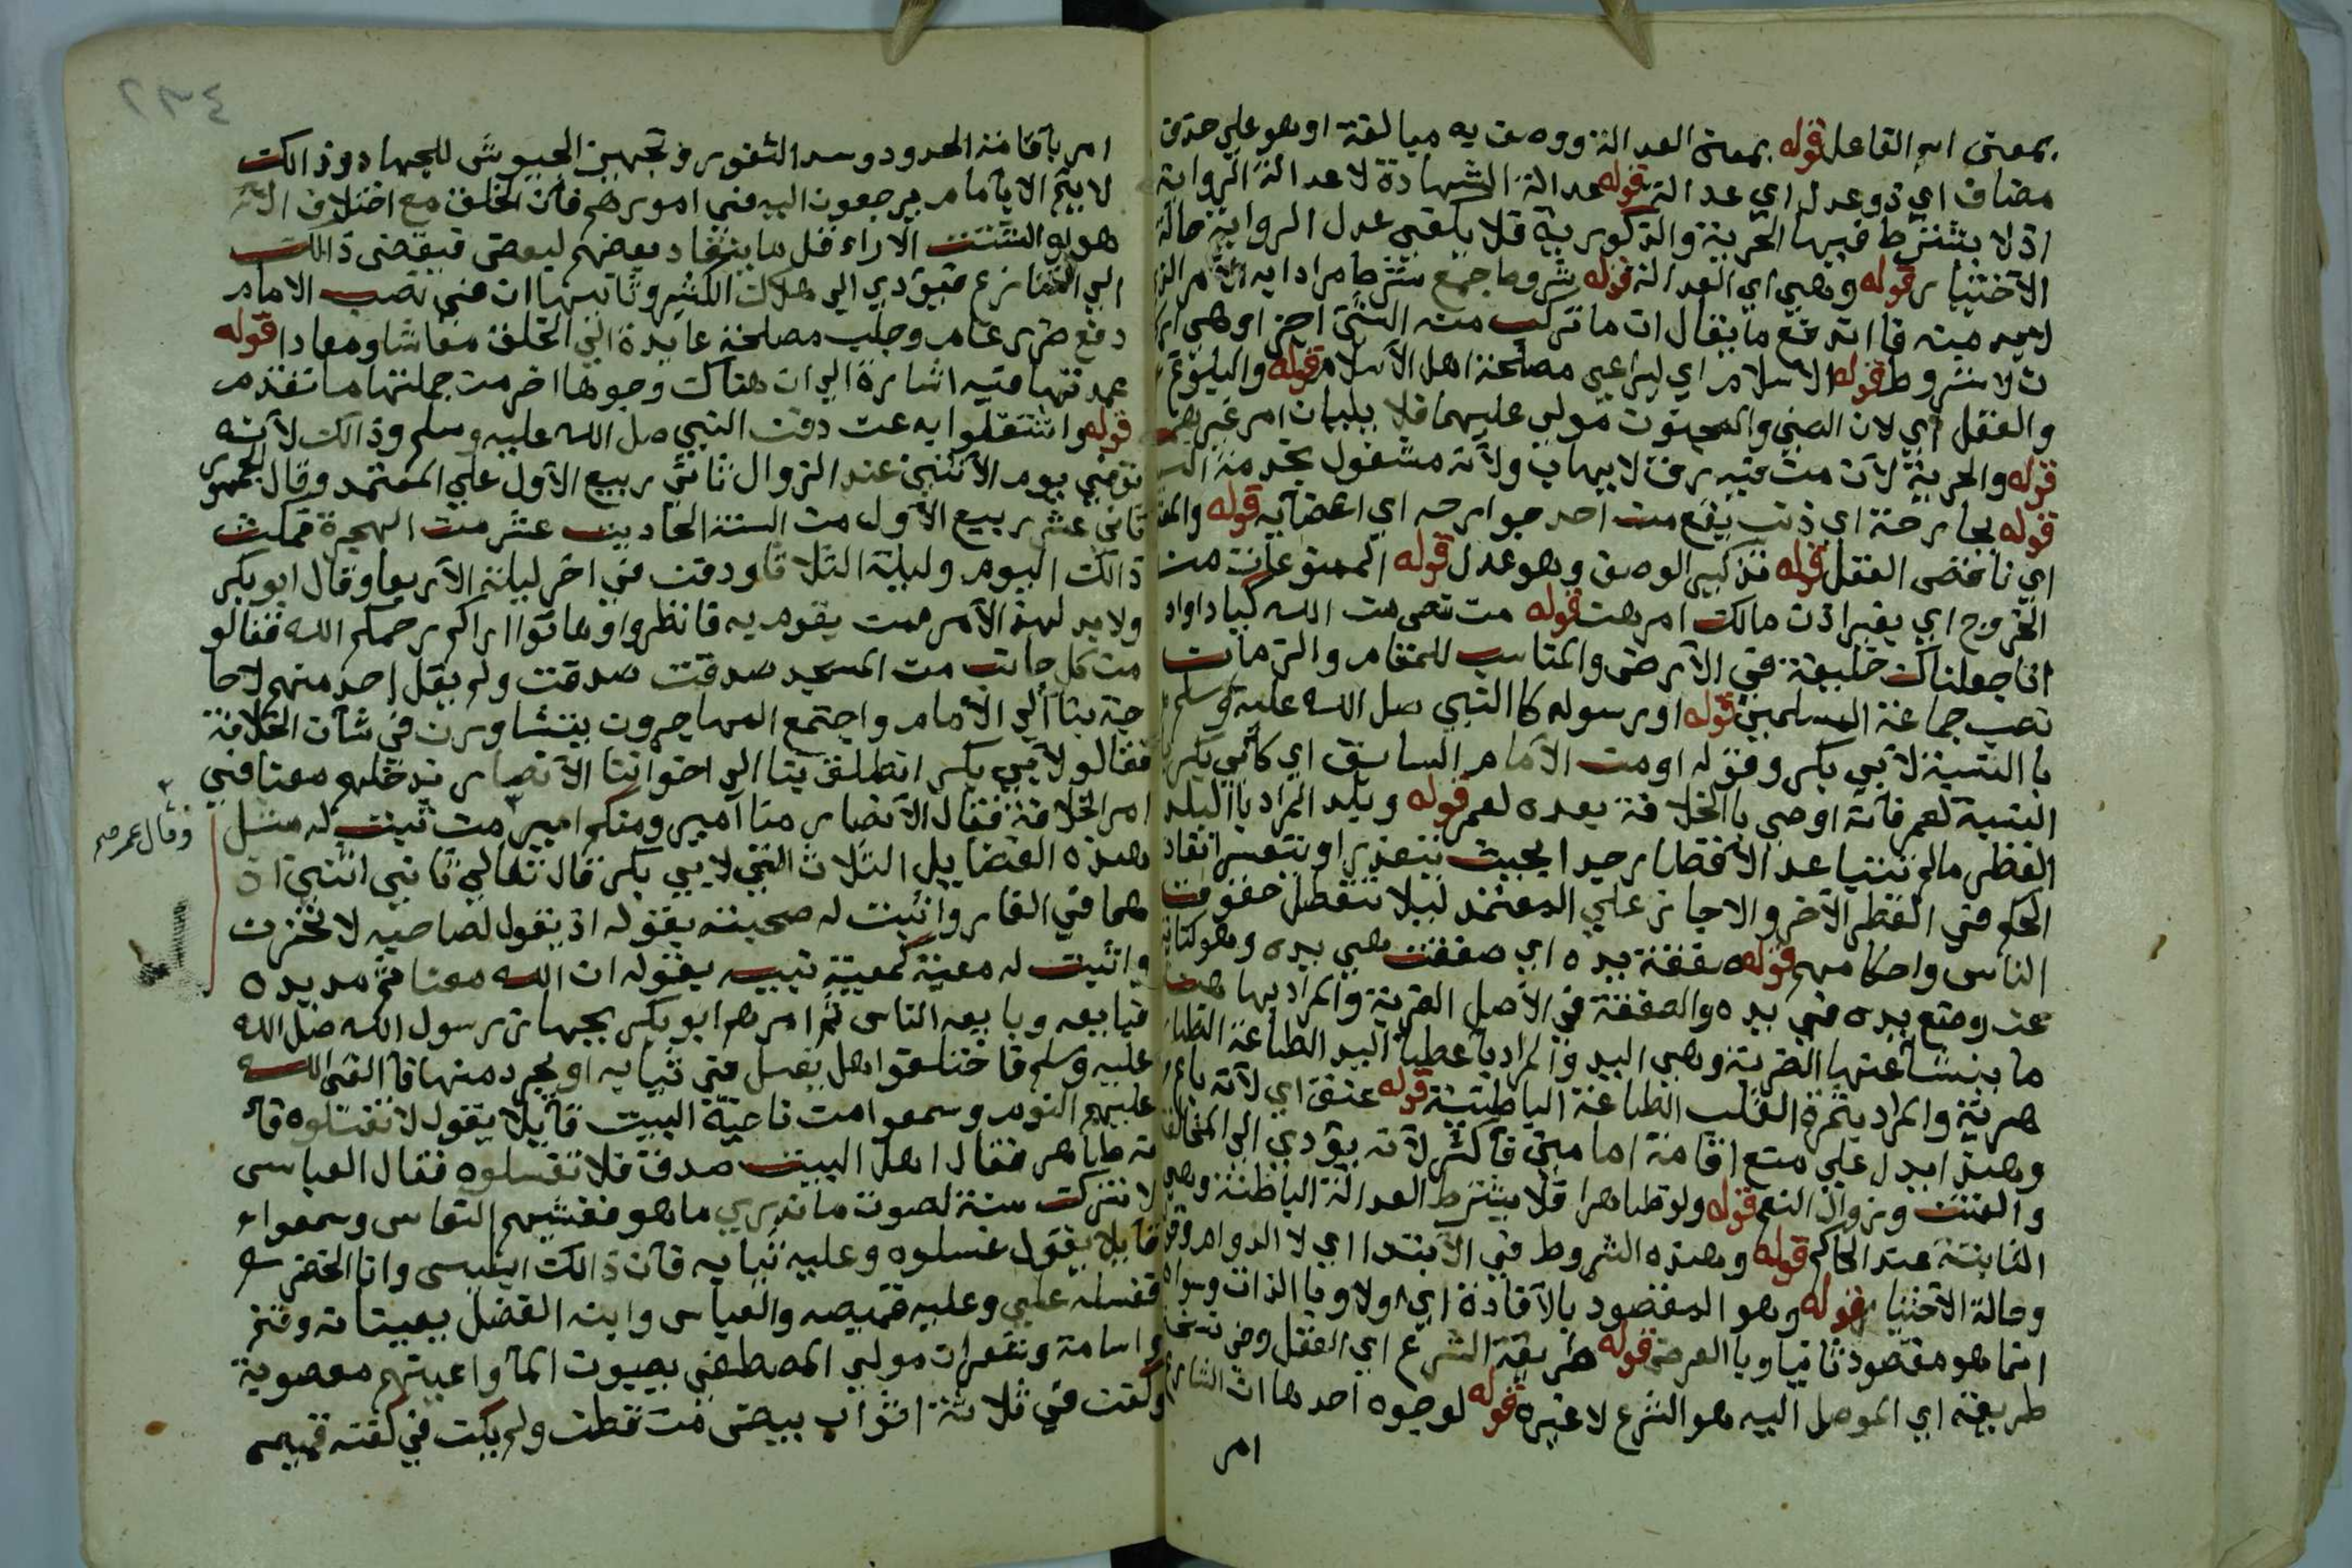 بمعنى اسم الفاعل قوله بمعنى العدالة ووصف به مبالغة او هو على حذف
مضاف اي ذو عدل اي عدالة قوله عدالة الشهادة لا عدالة الرواية
اذ لا يشترط فيها الحرية والذكورية فلا يكفي عدل الرواية حالة
الاختيار قوله وهي اي العدالة قوله شروط جمع شرط مرادا به الامر
لابد منه فاندفع ما يقال ان ما تركب منه الشي اجزاوه
لا شروط قوله الاسلام اي ليراعي مصلحة اهل الاسلام قوله والبلوغ
والعقل اي لان الصبي والمجنون مولي عليهما فلا يليان امر غيرهما
قوله والحرية لان من فيه رق لا يهاب ولانه مشغول بخدمة
قوله بجارحة اي ذنب يقع من احد جوارحه اي اعضايه قوله
اي ناقص العقل قوله تذكير الوصف وهو عدل قوله الممنوعات من
الخروج اي بغير اذن مالك امرهن قوله من نص من الله كيا داود
انا جعلناك خليفة في الارض والمناسب للمقام والزمان
نصب جماعة المسلمين قوله او رسوله كالنبي صل الله عليه وسلم
بالنسبة لابي بكر وقوله او من الامام السابق اي كابي بكر
النسبة لعمر فانه اوصي بالخلافة بعده لعمر قوله وبلد المراد بالبلد
القطر مالم تتباعد الاقطار جدا بحيث يتعذر او يتعسر انفاذ
الحكم في القطر الاخر والا جاز علي المعتمد ليلا تتعطل حقوق
الناس واحكامهم قوله صفقة يده اي صفقت هي يده وهو كناية
عن وضع يده في يده والصفقة في الاصل الضربة والمراد بها هنا
ما ينشا عنها الضربة وهي اليد والمراد باعطا اليد الطاعة
والمراد بثمرة القلب الطاعة الباطنية قوله عنق اي لانه باغ
وهذا يدل علي منع اقامة امامين فاكثر لانه يؤدي الي
والفتن وزوال النعم قوله ولو ظاهرا فلا يشترط العدالة الباطنة وهي
الثابتة عند الحاكم قوله وهذه الشروط في الابتدا اي لا الدوام
وحالة الاختيار قوله وهو المقصود بالافادة اي اولا وبالذات
انما هو مقصود ثانيا وبالعرض قوله طريقة الشرع اي العقل
طريقه اي الموصل اليه هو الشرع لا غيره قوله لوجوه احدها ان
امر
٢٣٤
امر باقامة الحدود وسد الثغور وتجهيز الجيوش للجهاد وذالك
لا يتم الا بامام يرجعون اليه في امورهم فان الخلق مع اختلاف
هوا وتشتت الاراء قل ما ينقاد بعضهم لبعض فيفضي ذالك
الي التنازع فيؤدي الي هلاك الكثير وثانيها ان في نصب الامام
دفع ضرر عام وجلب مصلحة عايدة الي الخلق معاشا ومعادا قوله
عمدتها فيه اشارة الي ان هناك وجوها اخر من جملتها ما تقدم
قوله واشتغلوا به عن دفن النبي صل الله عليه وسلم وذالك لانه
توفي يوم الاثنين عند الزوال ثاني ربيع الاول علي المعتمد وقال الجمهور
ثاني عشر ربيع الاول من السنة الحادية عشر من الهجرة فمكث
ذالك اليوم وليلة الثلاثا ودفن في اخر ليلة الاربعا وقال ابو بكر
ولابد لهذا الامر ممن يقوم به فانظروا وهاتوا اراكم رحمكم الله فقالو
من كل جانب من المسجد صدقت صدقت ولم يقل احد منهم لا حا
جة بنا الي الامام واجتمع المهاجرون يتشاورن في شان الخلافة
فقالو لابي بكر انطلق بنا الي اخواننا الانصار ندخلهم معنا في
امر الخلافة فقال الانصار منا امير ومنكم امير من ثبت له مثل
وقال عمر
هذه الفضايل الثلاث التي لابي بكر قال تعالي ثاني اثنين اذ
هما في الغار واثبت له صحبته بقوله اذ يقول لصاحبه لا تحزن
واثبت له معية كمعية نبيه بقوله ان الله معنا ثم مد يده
فبايعه وبايعه الناس ثم امرهم ابو بكر بجهاز رسول الله صل الله
عليه وسلم فاختلفوا هل يغسل في ثيابه او يجرد منها فالقي الله
عليهم النوم وسمعوا من ناحية البيت قايلا يقول لا تغسلوه فا
نه طاهر فقال اهل البيت صدق فلا تغسلوه فقال العباس
لا نترك سنة لصوت ما ندري ما هو فغشيهم النعاس وسمعوا
قايلا يقول غسلوه وعليه ثيابه فان ذالك ابليس وانا الخضر
فغسله علي وعليه قميصه والعباس وابنه الفضل يعينانه وقثم
واسامة وشقران مولي المصطفي يصبون الما واعينهم معصوبة
وكفن في ثلاثة اثواب بيض من قطن ولم يكن في كفنه قميص